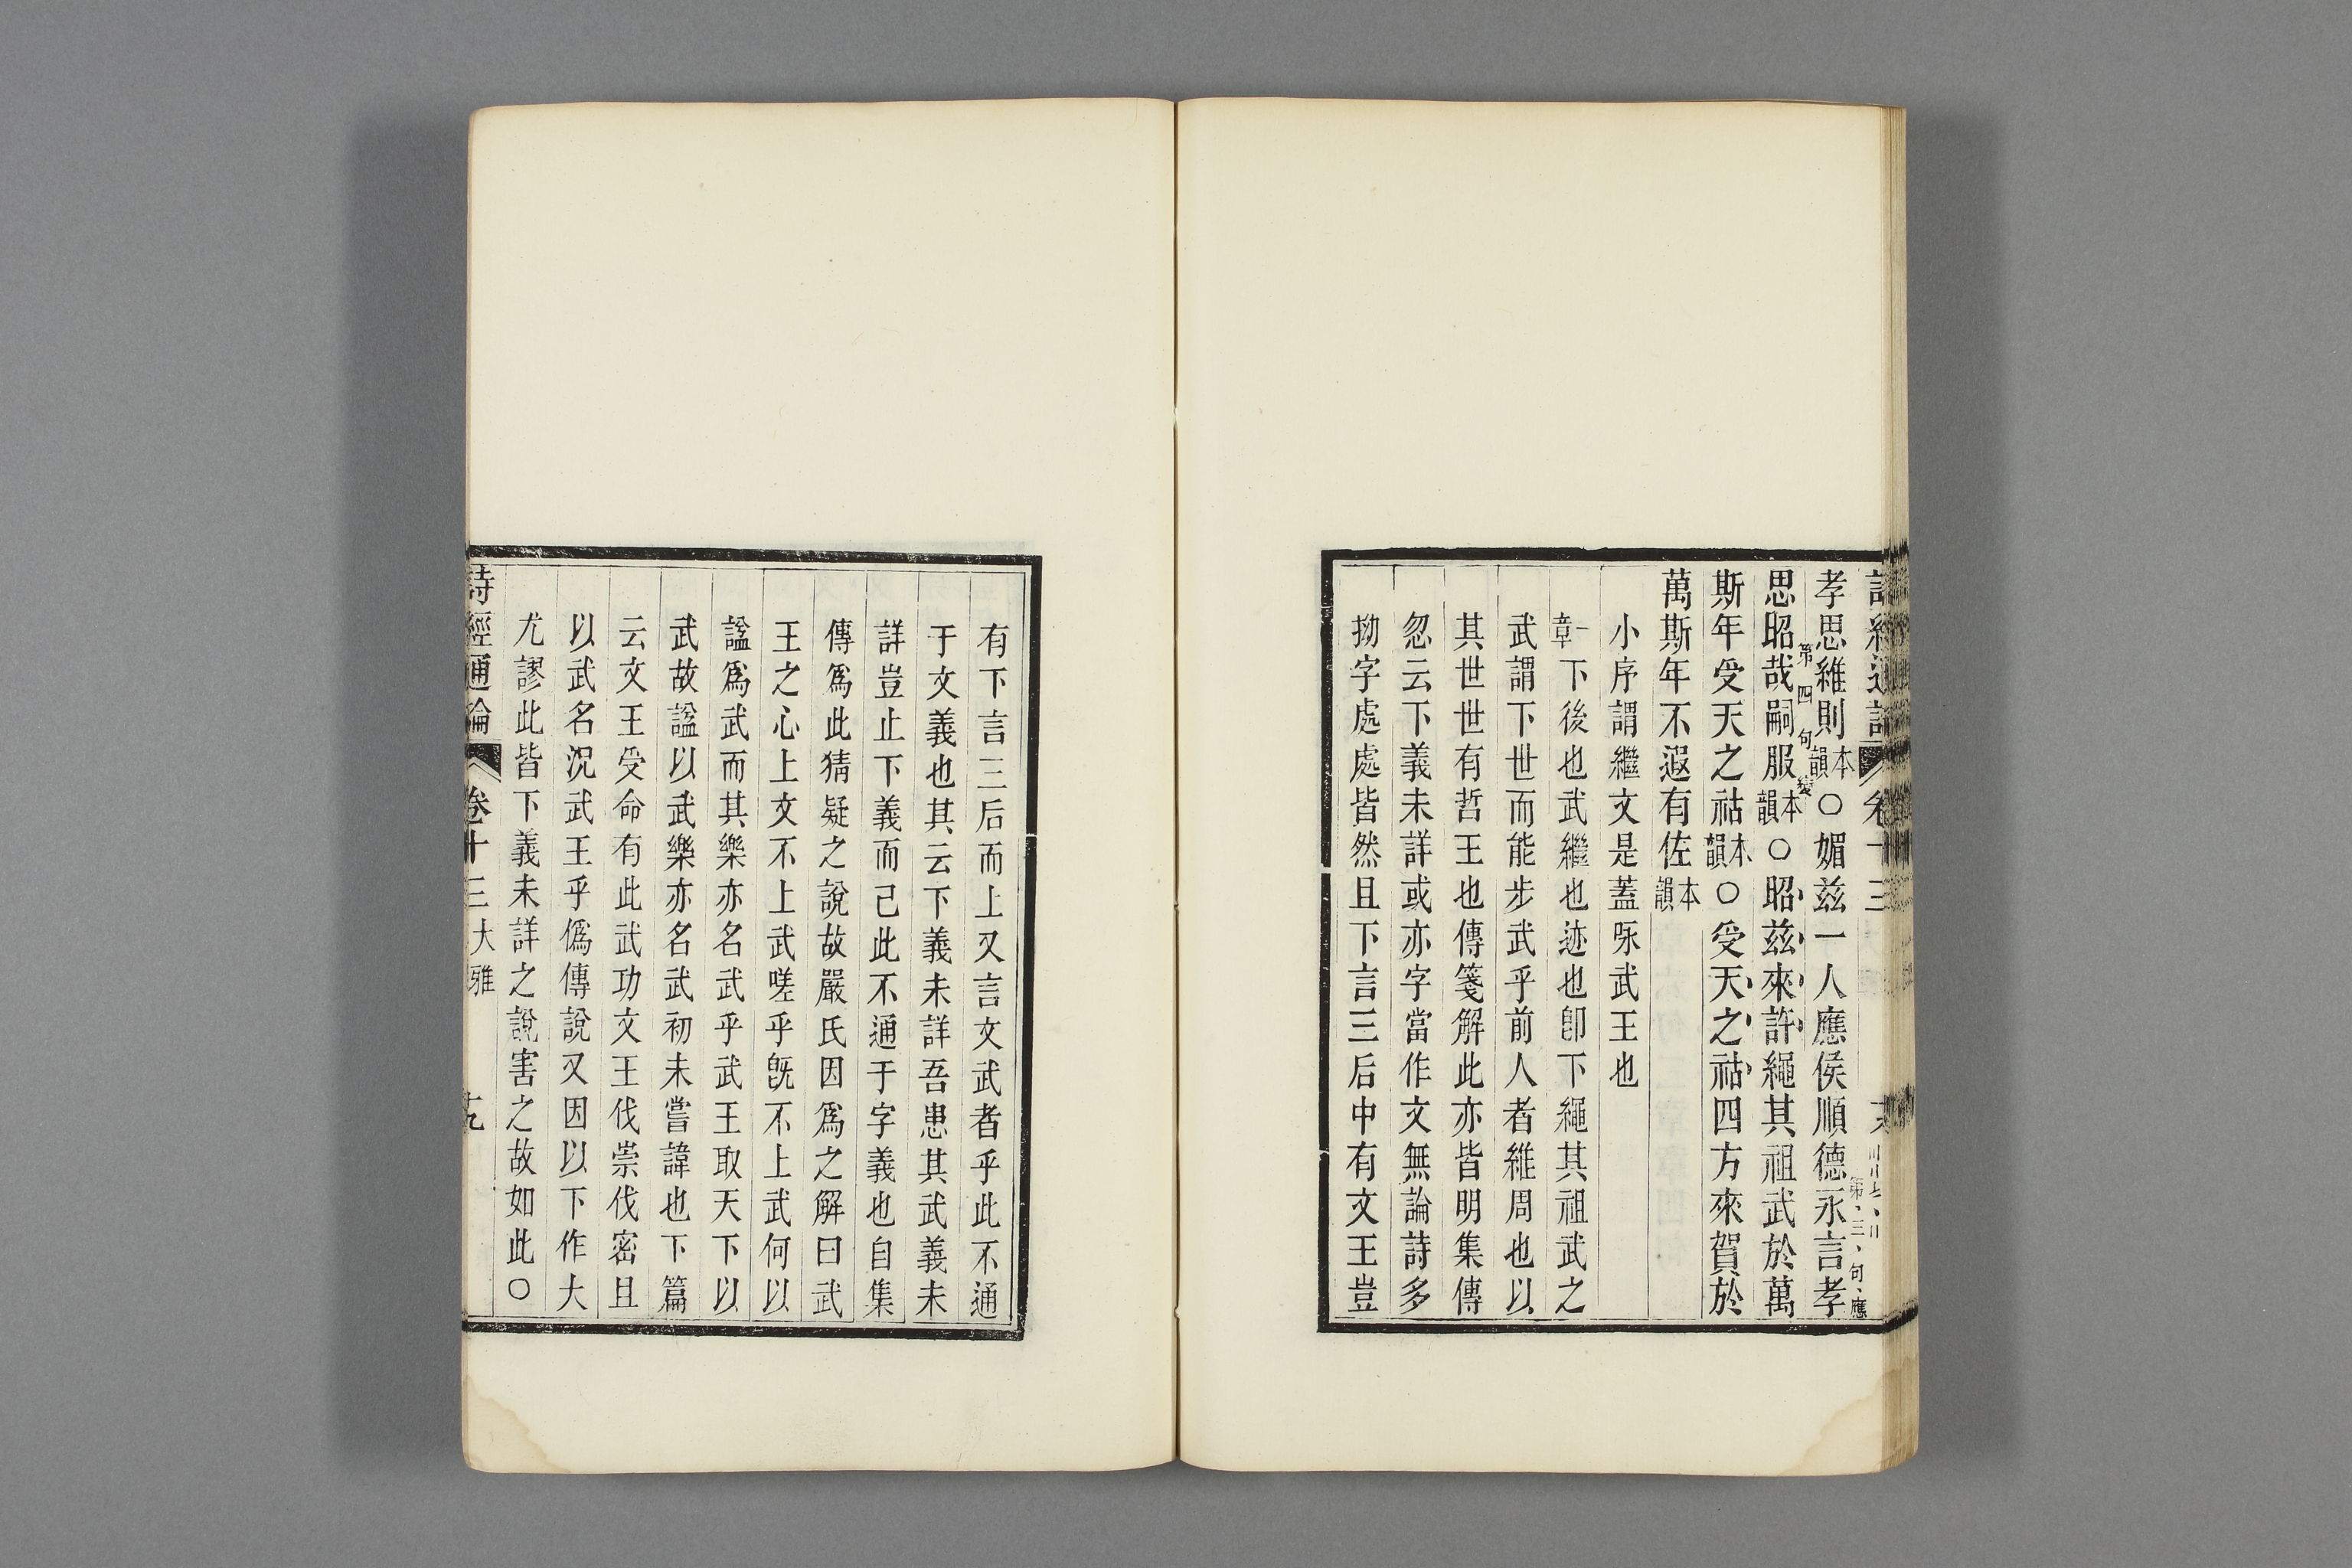 孝思維則本韻○媚兹一人應侯順德永言孝
第三句應
思昭哉嗣服本韻○昭兹來許繩其祖武於萬
第四句
斯年受天之祜本韻○受天之祜四方來賀於
萬斯年不遐有佐本韻
小序謂繼文是蓋咏武王也
一章下後也武繼也迹也卽下繩其祖武之
武謂下世而能步武乎前人者維周也以
其世世有哲王也傳箋解此亦皆明集傳
忽云下義未詳或亦字當作文無論詩多
拗字處處皆然且下言三后中有文王豈
有下言三后而上又言文武者乎此不通
于文義也其云下義未詳吾患其武義未
詳豈止下義而已此不通于字義也自集
傳爲此猜疑之說故嚴氏因爲之解曰武
王之心上文不上武嗟乎旣不上武何以
諡爲武而其樂亦名武乎武王取天下以
武故諡以武樂亦名武初未嘗諱也下篇
云文王受命有此武功文王伐崇伐密且
以武名況武王乎僞傳說又因以下作大
尤謬此皆下義未詳之說害之故如此○
詩經通論 卷十三 大雅 十九